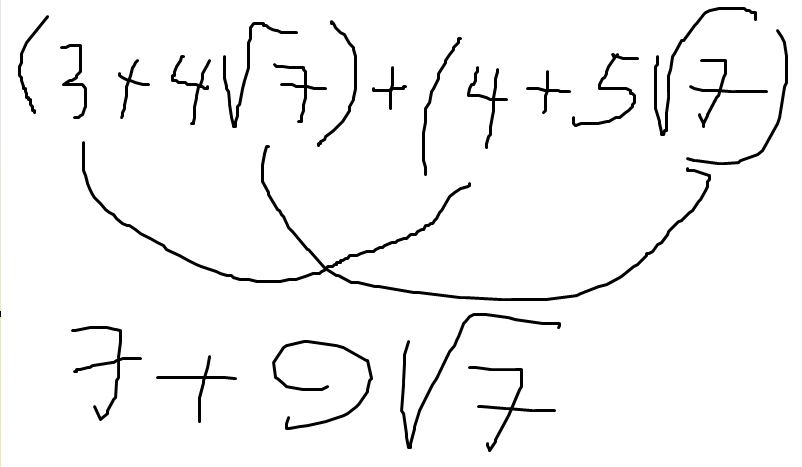 (3+4√7)+(4+5√7)
7+9√7